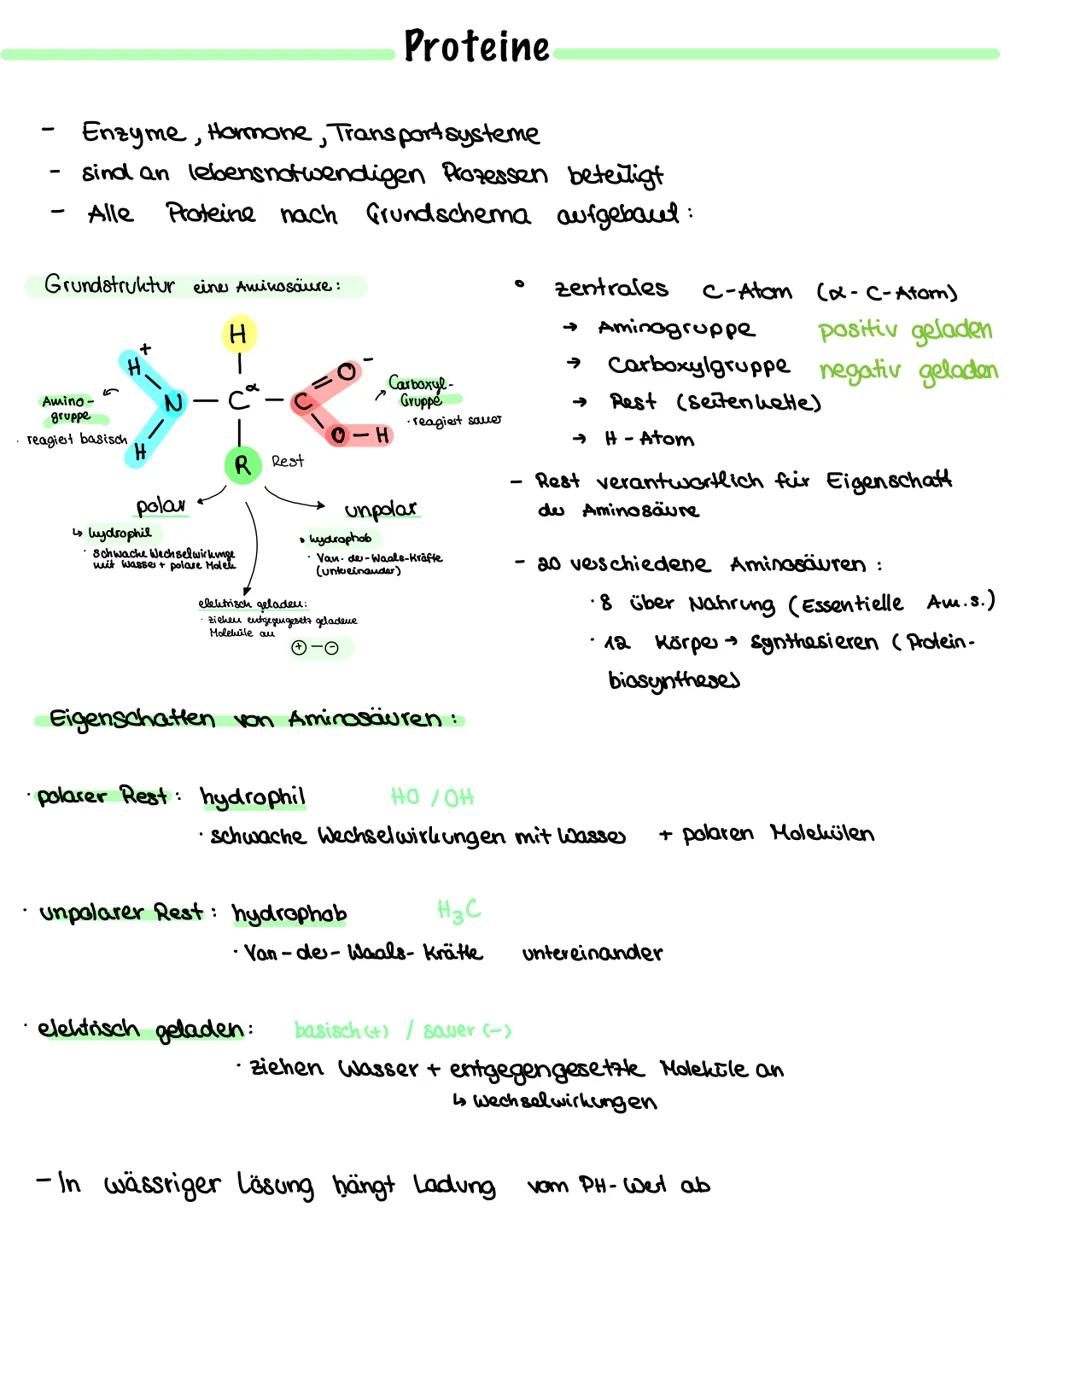 Proteine
- Enzyme, Hormone, Transportsysteme
- sind an lebensnotwendigen Prozessen beteiligt
- Alle Proteine nach Grundschema aufgebaut:
Grundstruktur einer Aminosäure:
H
+
H
N - C α - C
O -
O - H
H
R Rest
Amino-
gruppe
· reagiert basisch
Carboxyl-
Gruppe
· reagiert sauer
polar
↳ hydrophil
· schwache Wechselwirkunge
mit Wasser + polare Molek
unpolar
hydrophob
· Van-der-Waals-Kräfte
(untereinander)
elektrisch geladen:
· ziehen entgegengesetz geladene
Moleküle an
⊕-⊖
° zentrales C-Atom (α-C-Atom)
→ Aminogruppe positiv geladen
→ Carboxylgruppe negativ geladen
→ Rest (Seitenkette)
→ H-Atom
- Rest verantwortlich für Eigenschaft
der Aminosäure
- 20 verschiedene Aminosäuren:
· 8 über Nahrung (Essentielle Am.s.)
· 12 Körper → Synthesieren (Protein-
biosynthese)
Eigenschaften von Aminosäuren:
· polarer Rest: hydrophil HO / OH
· schwache Wechselwirkungen mit Wasser + polaren Molekülen
· unpolarer Rest: hydrophob H₃C
· Van-der-Waals-Kräfte untereinander
· elektrisch geladen: basisch (+) / sauer (-)
· ziehen Wasser + entgegengesetzte Moleküle an
↳ Wechselwirkungen
- In wässriger Lösung hängt Ladung vom PH-Wert ab